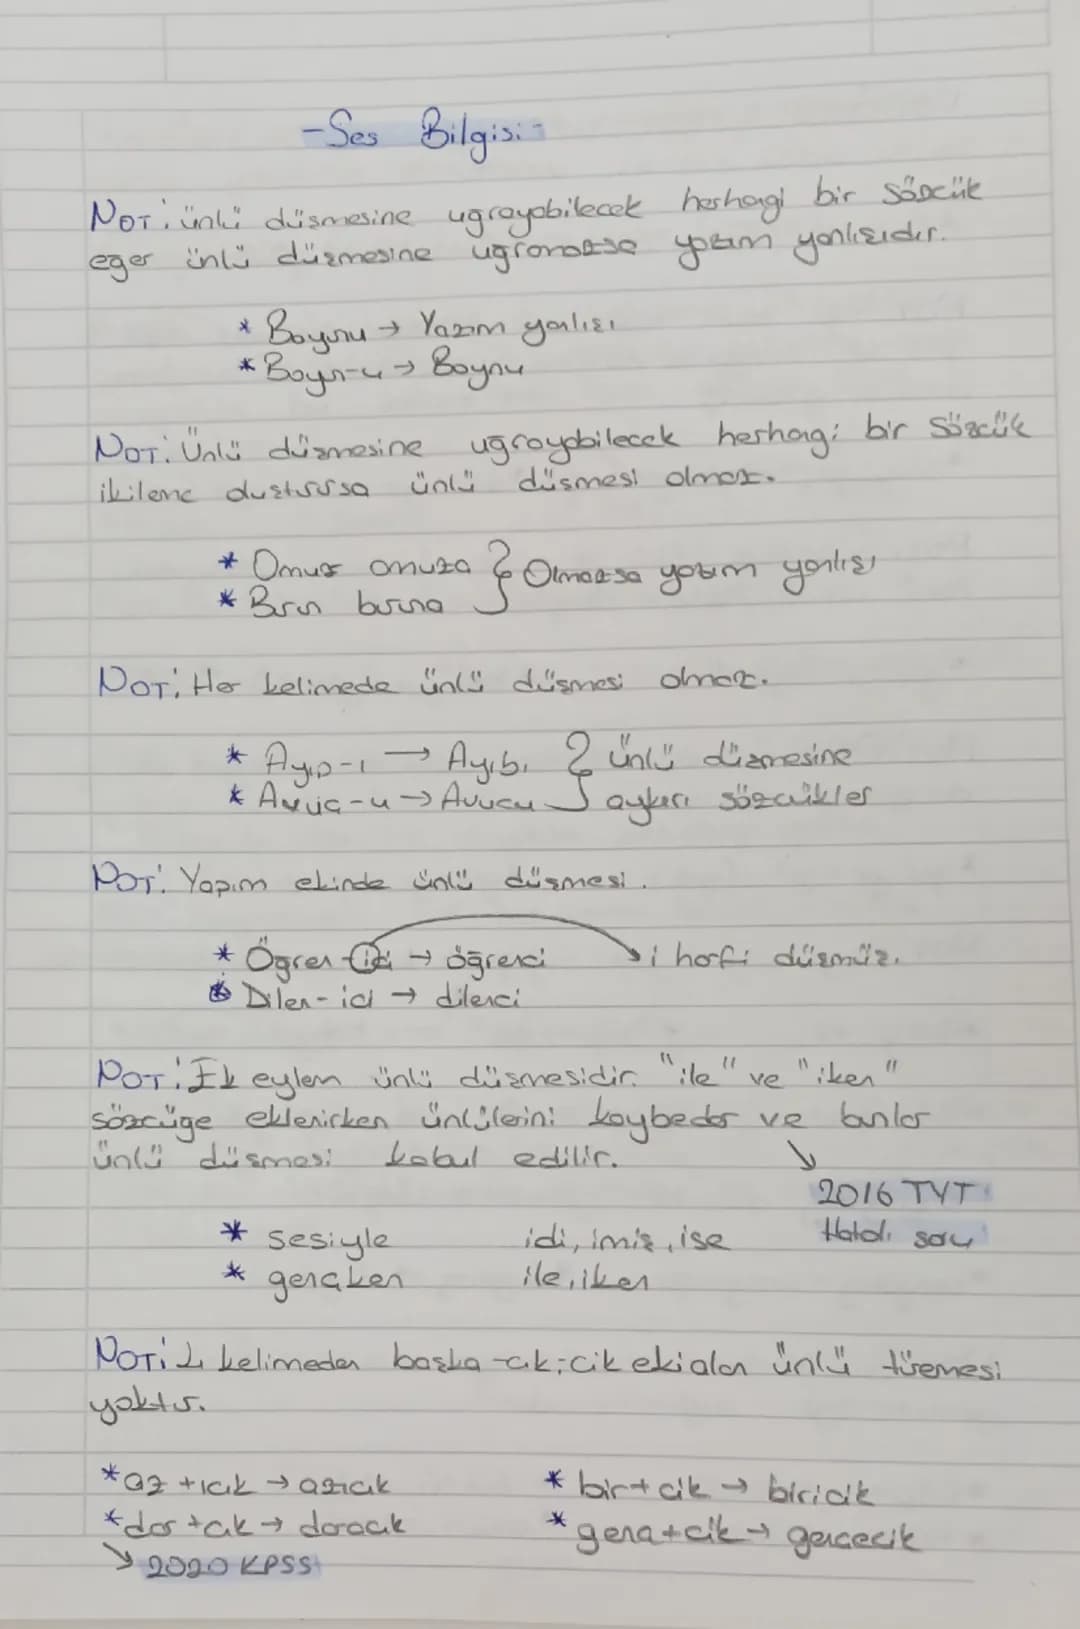 -Ses Bilgisi-
NOT: ünlü düşmesine uğrayabilecek herhagi bir sözcük
eğer ünlü düşmesine uğramazsa yazım yanlışıdır.
* Boyunu → Yazım yanlışı
* Boyn-u → Boynu
NOT: Ünlü düşmesine uğrayabilecek herhangi bir sözcük
ikileme oluşturursa ünlü düşmesi olmaz.
* Omuz omuza } Olmazsa yazım yanlışı
* Burun buruna
NOT: Her kelimede ünlü düşmesi olmaz.
* Ayıp-ı → Ayıbı } ünlü düşmesine
* Avuç-u → Avucu aykırı sözcükler
NOT: Yapım ekinde ünlü düşmesi.
* Öğren-ici → öğrenci i harfi düşmüş.
* Dilen-ici → dilenci
NOT: Ek eylem ünlü düşmesidir. "ile" ve "iken"
sözcüğe eklenirken ünlülerini kaybeder ve bunlar
ünlü düşmesi kabul edilir.
2016 TYT
* sesiyle idi, imiş, ise Hatalı soru
* gençken ile, iken
NOT: 4 kelimeden başka -cık, cik eki alan ünlü türemesi
yoktur.
* az + ıcık → azıcık * bir + cik → biricik
* dar + cık → daracık * genç + cik → gencecik
↘ 2020 KPSS